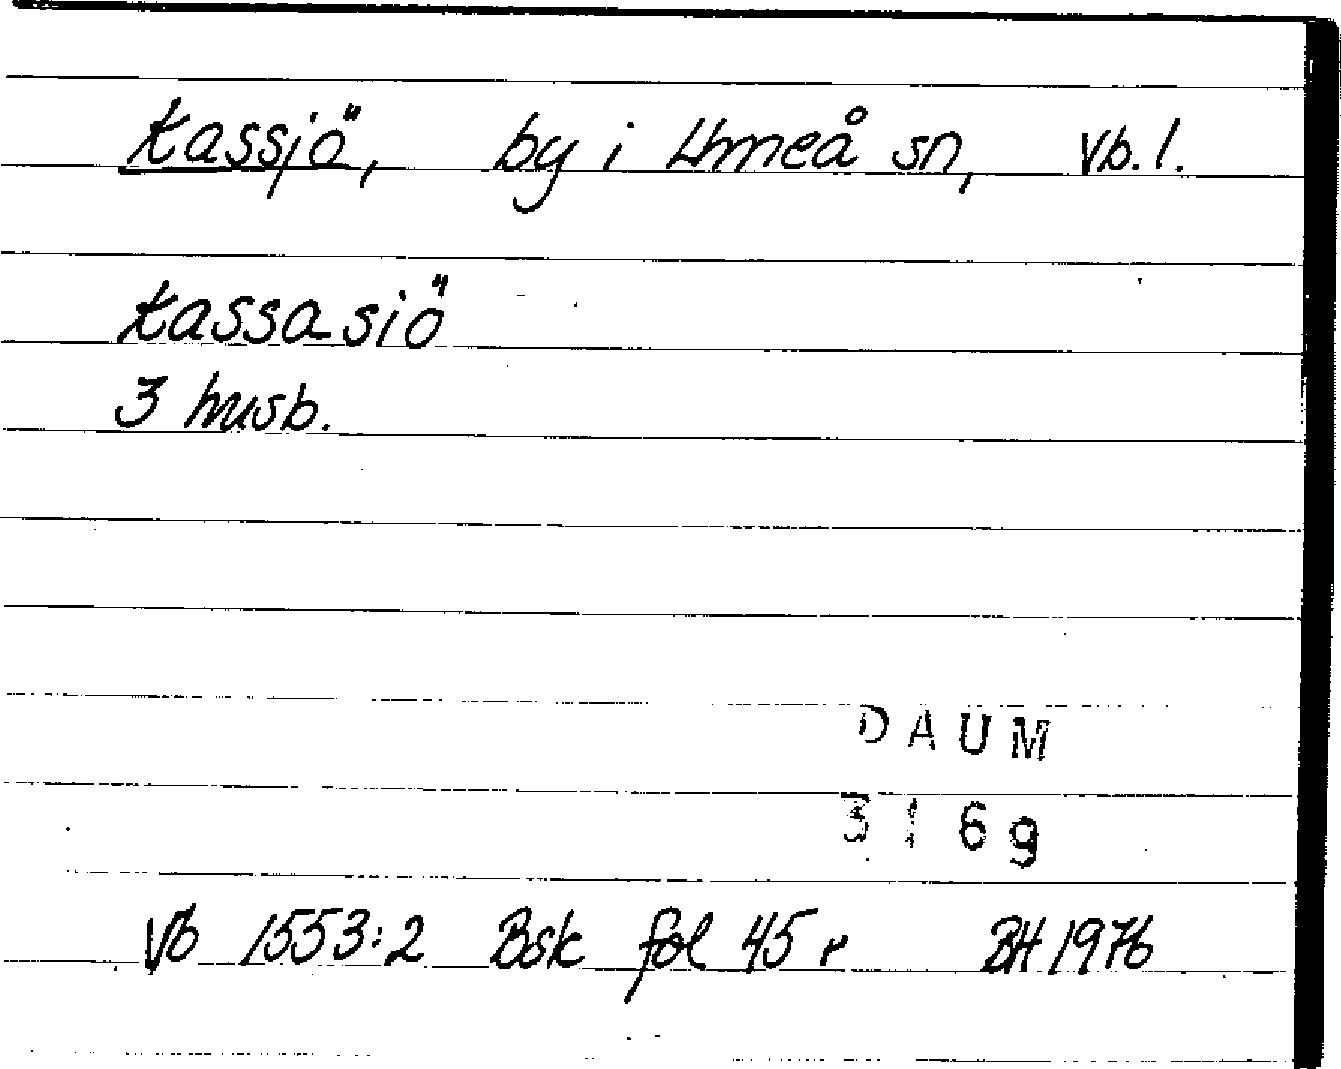 Kassjö, by i Umeå sn, Vb. l.
Kassasiö
3 husb.
DAUM
3169
Vb 1553:2 Bsk fol 45 r BH 1976